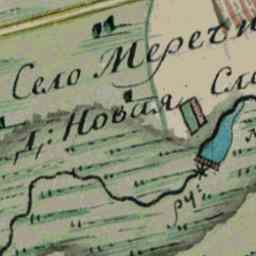 Село Меречи
Д: Новая Сло
ру: